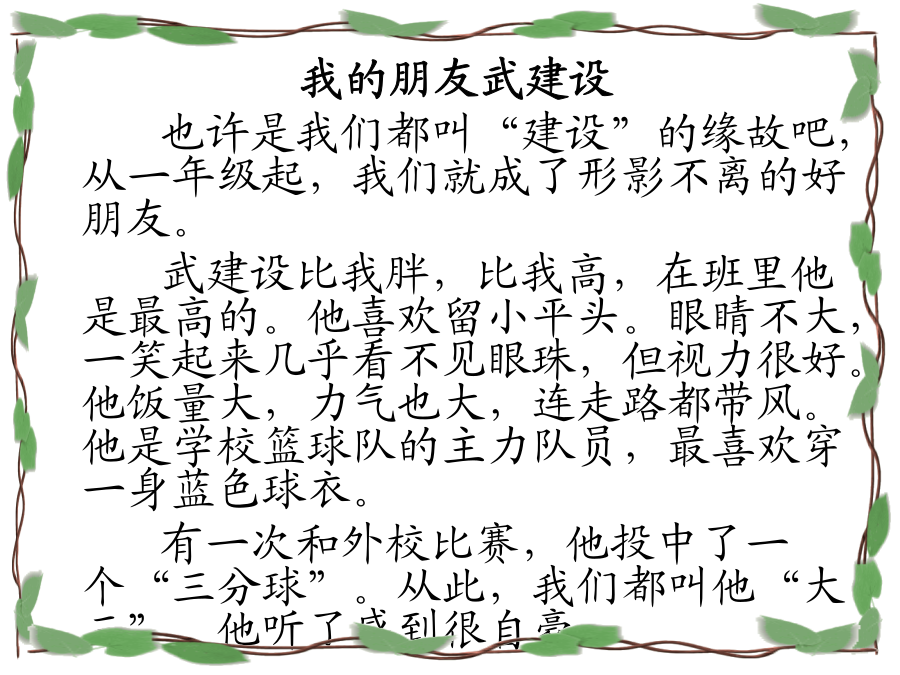 我的朋友武建设
也许是我们都叫“建设”的缘故吧，
从一年级起，我们就成了形影不离的好
朋友。
武建设比我胖，比我高，在班里他
是最高的。他喜欢留小平头。眼睛不大，
一笑起来几乎看不见眼珠，但视力很好。
他饭量大，力气也大，连走路都带风。
他是学校篮球队的主力队员，最喜欢穿
一身蓝色球衣。
有一次和外校比赛，他投中了一
个“三分球”。从此，我们都叫他“大
”，他听了感到很自豪